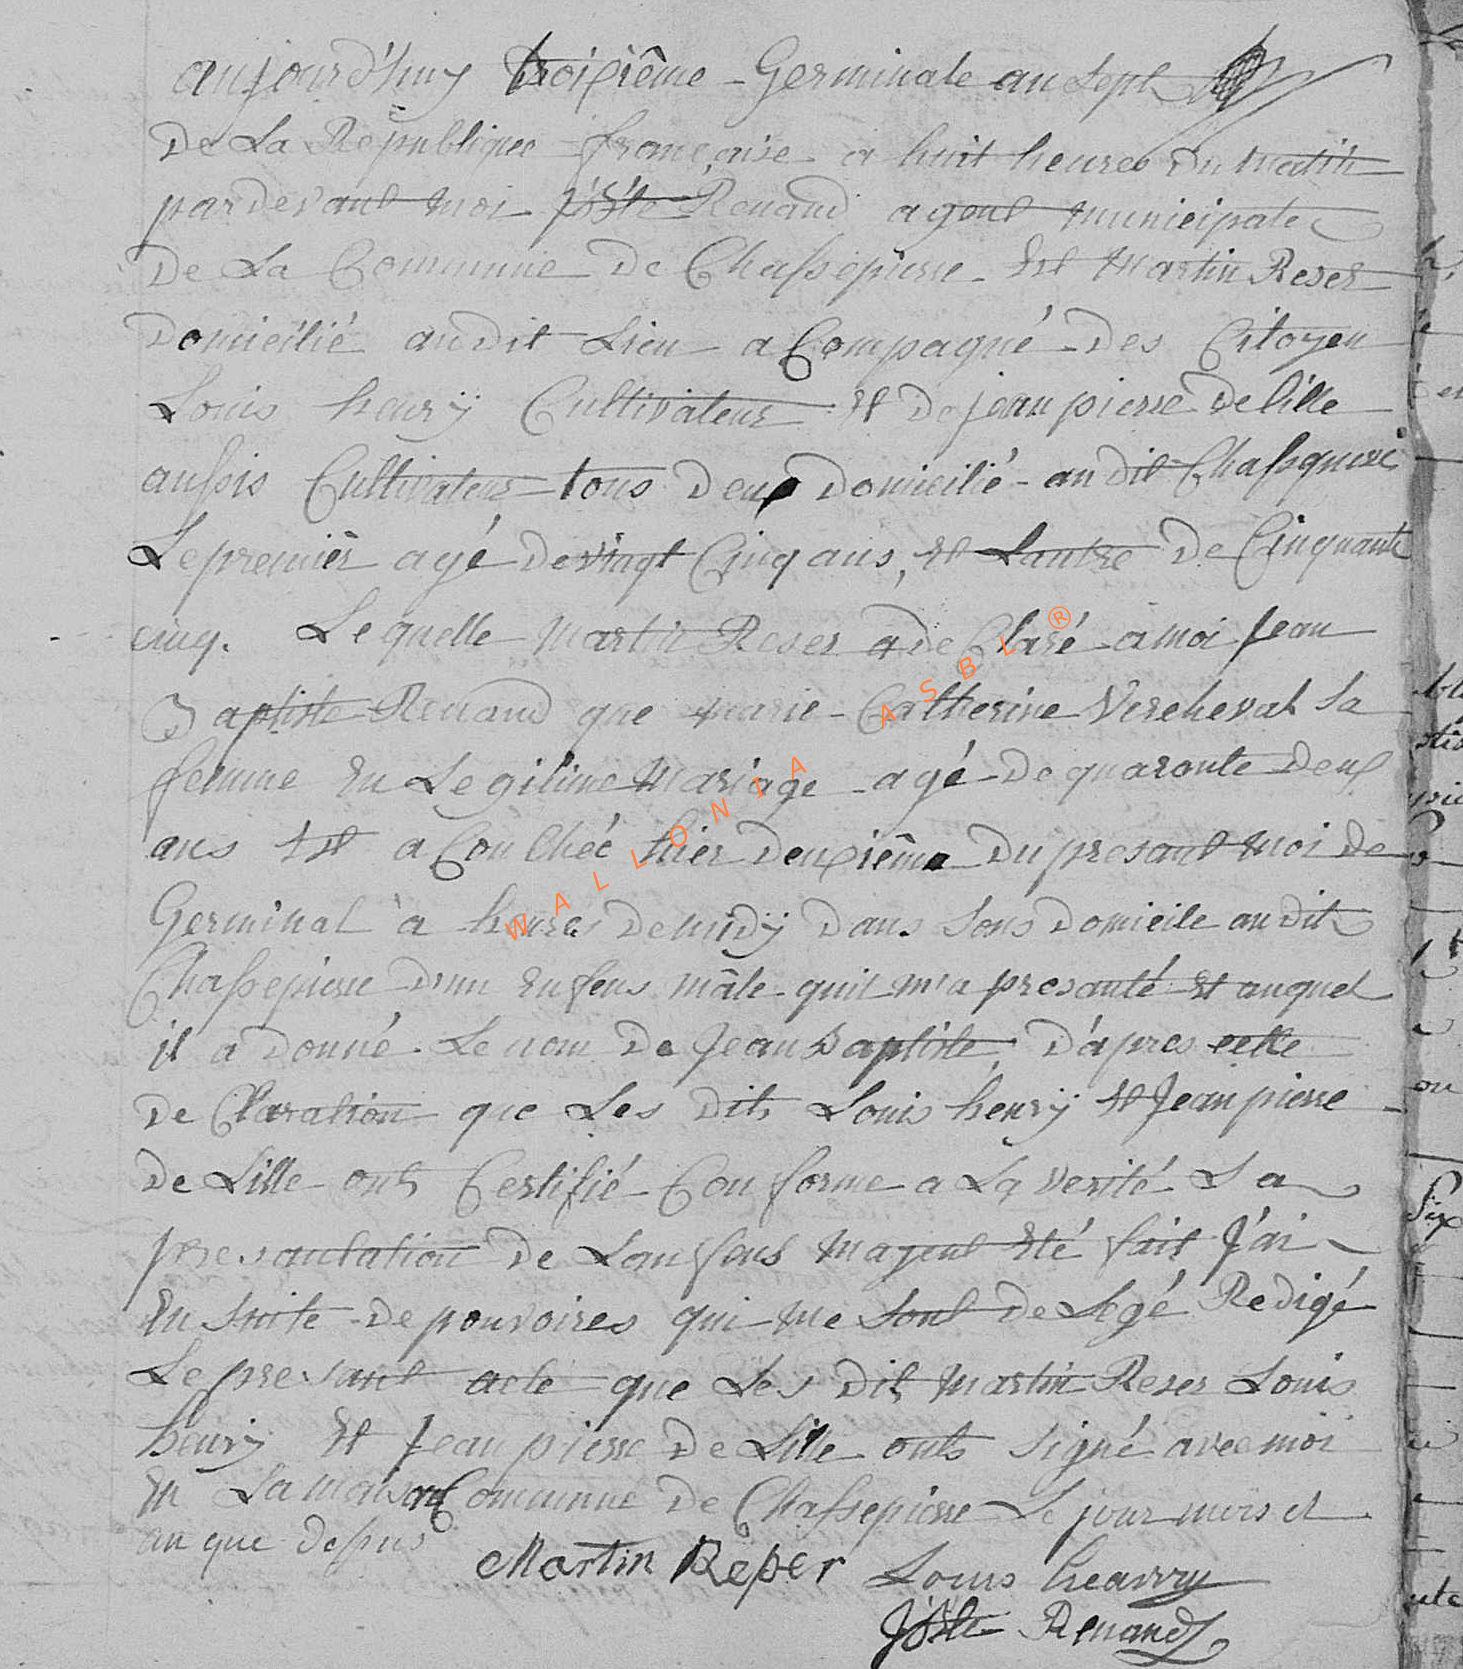 aujourd'huy troixiême Germinale an Sept
de La Republique française a huit heures du matin
pardevant moi Renaud agent municipale
de La Commune de Chassepierre Est Martin Reser
domicilié audit Lieu acCompagné des Citoyen
Louis henrÿ Cultivateur Et de jean pierre de lille
aussis Cultivateur tous deux domicilié audit Chassepierre
Le premier agé de vingt Cinq ans, Et Lautre de Cinquante
cinq. Le quelle Martin Reser a deClaré a moi Jean
Baptiste Renaud que marie Catherine Vircheval Sa
femme En Legitime Mariage agé de quarante deux
ans Est aCouchée hier deuxiême du presant moi de
Germinal à heures de midÿ dans Sons domicile audit
Chassepierre d'un Enfens mâle quil m'a presanté Et auquel
il a donné Le nom de Jean Baptiste, d'âpres cette
deClaration que Les dits Louis henrÿ Et Jean pierre
de Lille onts Certifié Conforme a La verité La
presantation de Lenfens Mayent Eté fait J'ai
En Suite de pouvoires qui me Sont deLegé Redigé
Le presant acte que Les dits Martin Reser Louis
henrÿ Et Jean pierre de Lille onts signé avec moi
En La maison Commune de Chassepierre Le jour mois et
an que depus
Martin Reser Louis hearry
Renaud
WALLONIA ASBL ®